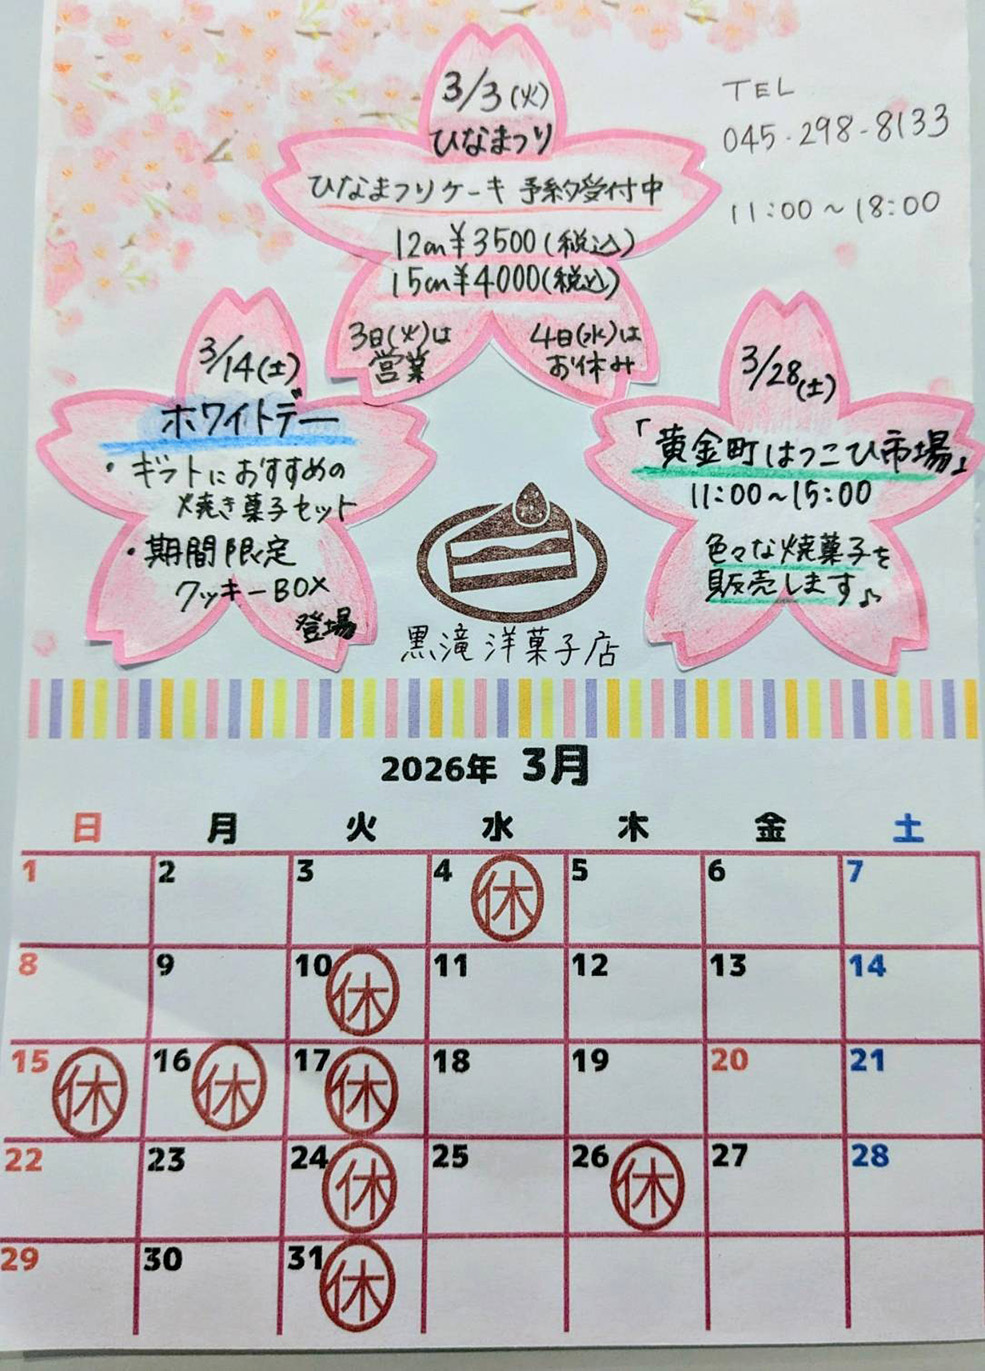 3/3(火)
ひなまつり
ひなまつりケーキ 予約受付中
12cm¥3500(税込)
15cm¥4000(税込)
3日(火)は
営業
4日(水)は
お休み
TEL
045-298-8133
11:00～18:00
3/14(土)
ホワイトデー
・ギフトにおすすめの
焼き菓子セット
・期間限定
クッキーBOX
登場
3/28(土)
「黄金町はつこひ市場」
11:00～15:00
色々な焼菓子を
販売します♪
黒滝洋菓子店
2026年 3月
日 月 火 水 木 金 土
1 2 3 4 休 5 6 7
8 9 10 休 11 12 13 14
15 休 16 休 17 休 18 19 20 21
22 23 24 休 25 26 休 27 28
29 30 31 休